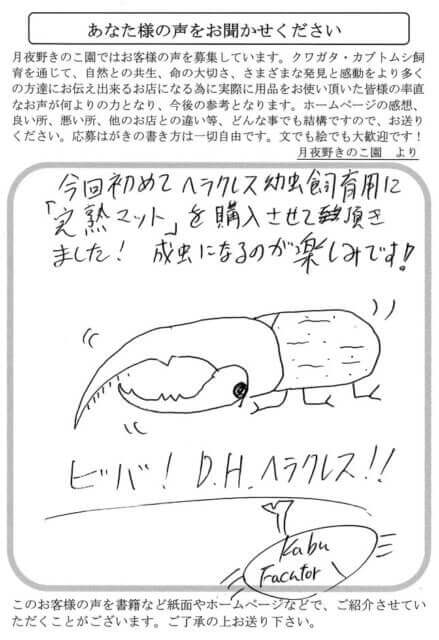 あなた様の声をお聞かせください
月夜野きのこ園ではお客様の声を募集しています。クワガタ・カブトムシ飼
育を通じて、自然との共生、命の大切さ、さまざまな発見と感動をより多く
の方達にお伝え出来るお店になる為に実際に用品をお使い頂いた皆様の率直
なお声が何よりの力となり、今後の参考となります。ホームページの感想、
良い所、悪い所、他のお店との違い等、どんな事でも結構ですので、お送り
ください。応募はがきの書き方は一切自由です。文でも絵でも大歓迎です！
月夜野きのこ園　より
今回初めてヘラクレス幼虫飼育用に
「完熟マット」を購入させて頂き
ました！ 成虫になるのが楽しみです！
ビバ！ D.H.ヘラクレス！！
Kabu
Fracator
このお客様の声を書籍など紙面やホームページなどで、ご紹介させてい
ただくことがございます。ご了承の上お送り下さい。